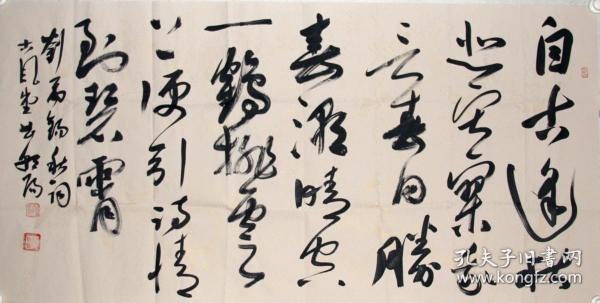 自古逢秋
悲寂寥我
言春日勝
春潮晴空
一鶴排雲
上便引詩情
到碧霄
劉禹錫秋词
孔夫子旧书网
www.kongfz.com